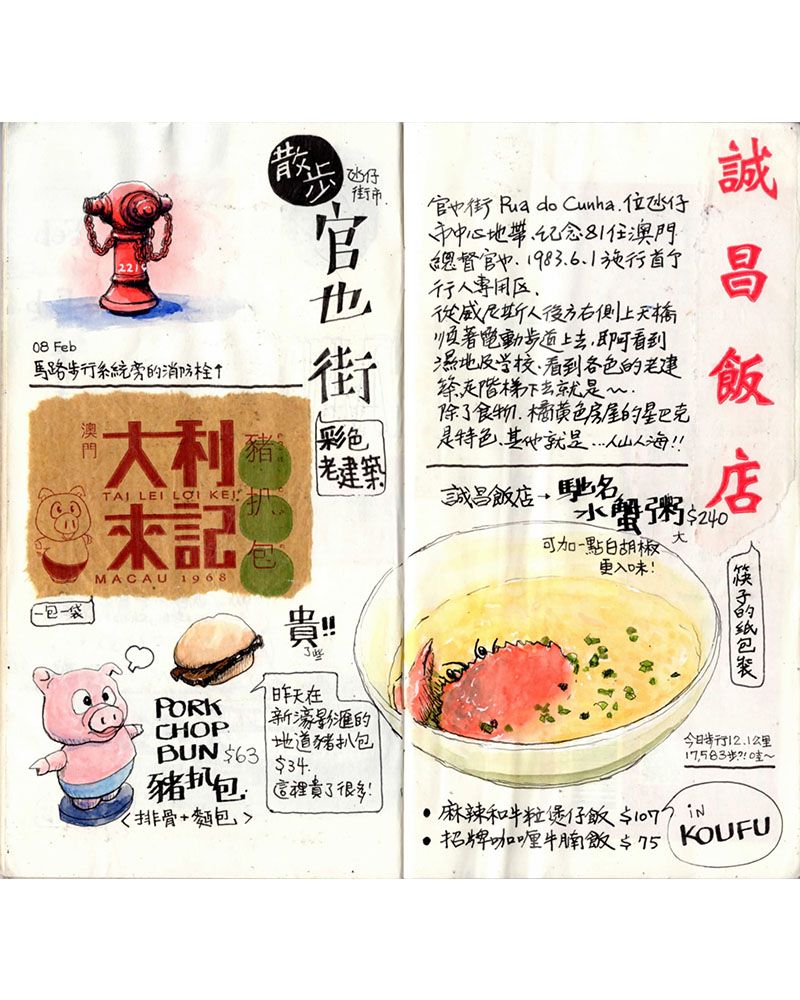 散步
氹仔
街市.
官也街
彩色
老建築
2214
08 Feb
馬路步行系統旁的消防栓↑
澳門
大利
來記
TAI LEI LOI KEI
MACAU 1968
豬扒包
一包一袋
PORK
CHOP
BUN $63
豬扒包.
<排骨+麵包>
貴!!
了些
昨天在
新濠影滙的
地道豬扒包
$34.
這裡貴了很多!
誠昌飯店
官也街 Rua do Cunha. 位氹仔
市中心地帶、紀念81任澳門
總督官也. 1983.6.1施行首个
行人專用区.
從威尼斯人後方右側上天橋
順著電動步道上去,即可看到
濕地及学校、看到各色的老建
築,走階梯下去就是~.
除了食物. 橘黃色房屋的星巴克
是特色、其他就是...人山人海!!
誠昌飯店→馳名
水蟹粥 $240
大
可加一點白胡椒
更入味!
筷子的紙包裝
今日步行12.1公里
17,583步?!哇~
• 麻辣和牛粒煲仔飯 $107
• 招牌咖喱牛腩飯 $75
in
KOUFU